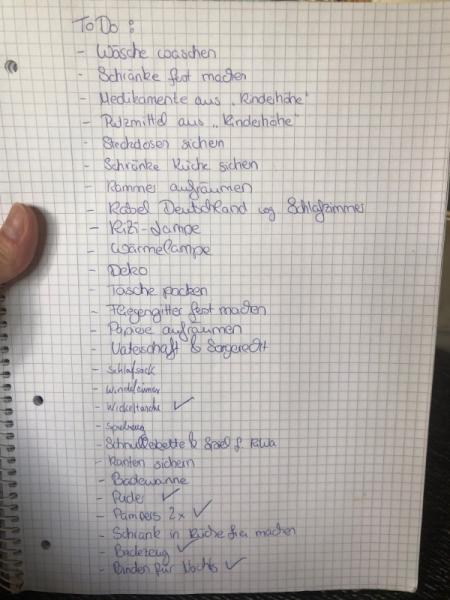 To Do :
- Wäsche waschen
- Schränke fest machen
- Medikamente aus „Kinderhöhe"
- Putzmittel aus „Kinderhöhe"
- Steckdosen sichern
- Schränke Küche sichern
- Kammer aufräumen
- Kabel Deutschland wg Schlafzimmer
- Kizi-Lampe
- Wärmelampe
- Deko
- Tasche packen
- Fliegengitter fest machen
- Papiere aufräumen
- Vaterschaft & Sorgerecht
- Schlafsack
- Windeleimer
- Wickeltasche ✓
- Spielzeug
- Schnullerkette & Spiel f. KiWa
- Kanten sichern
- Badewanne
- Puder ✓
- Pampers 2x ✓
- Schrank in Küche frei machen
- Badezeug ✓
- Binden für Nachts ✓